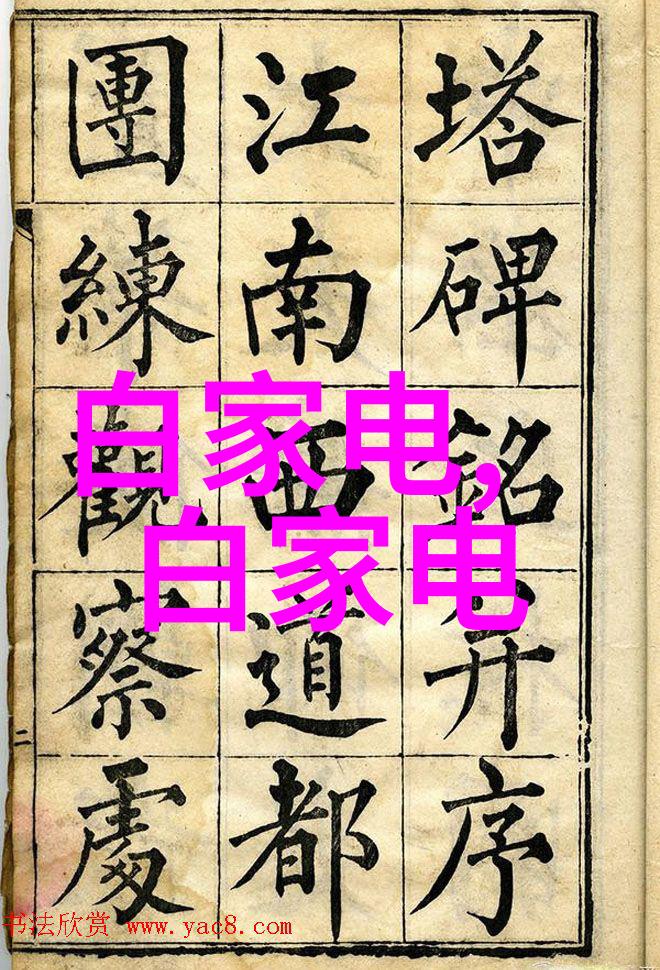 塔碑銘并序
江南西道都
團練觀察處
二
白家电,
白家电
书法欣赏 www.yac8.com